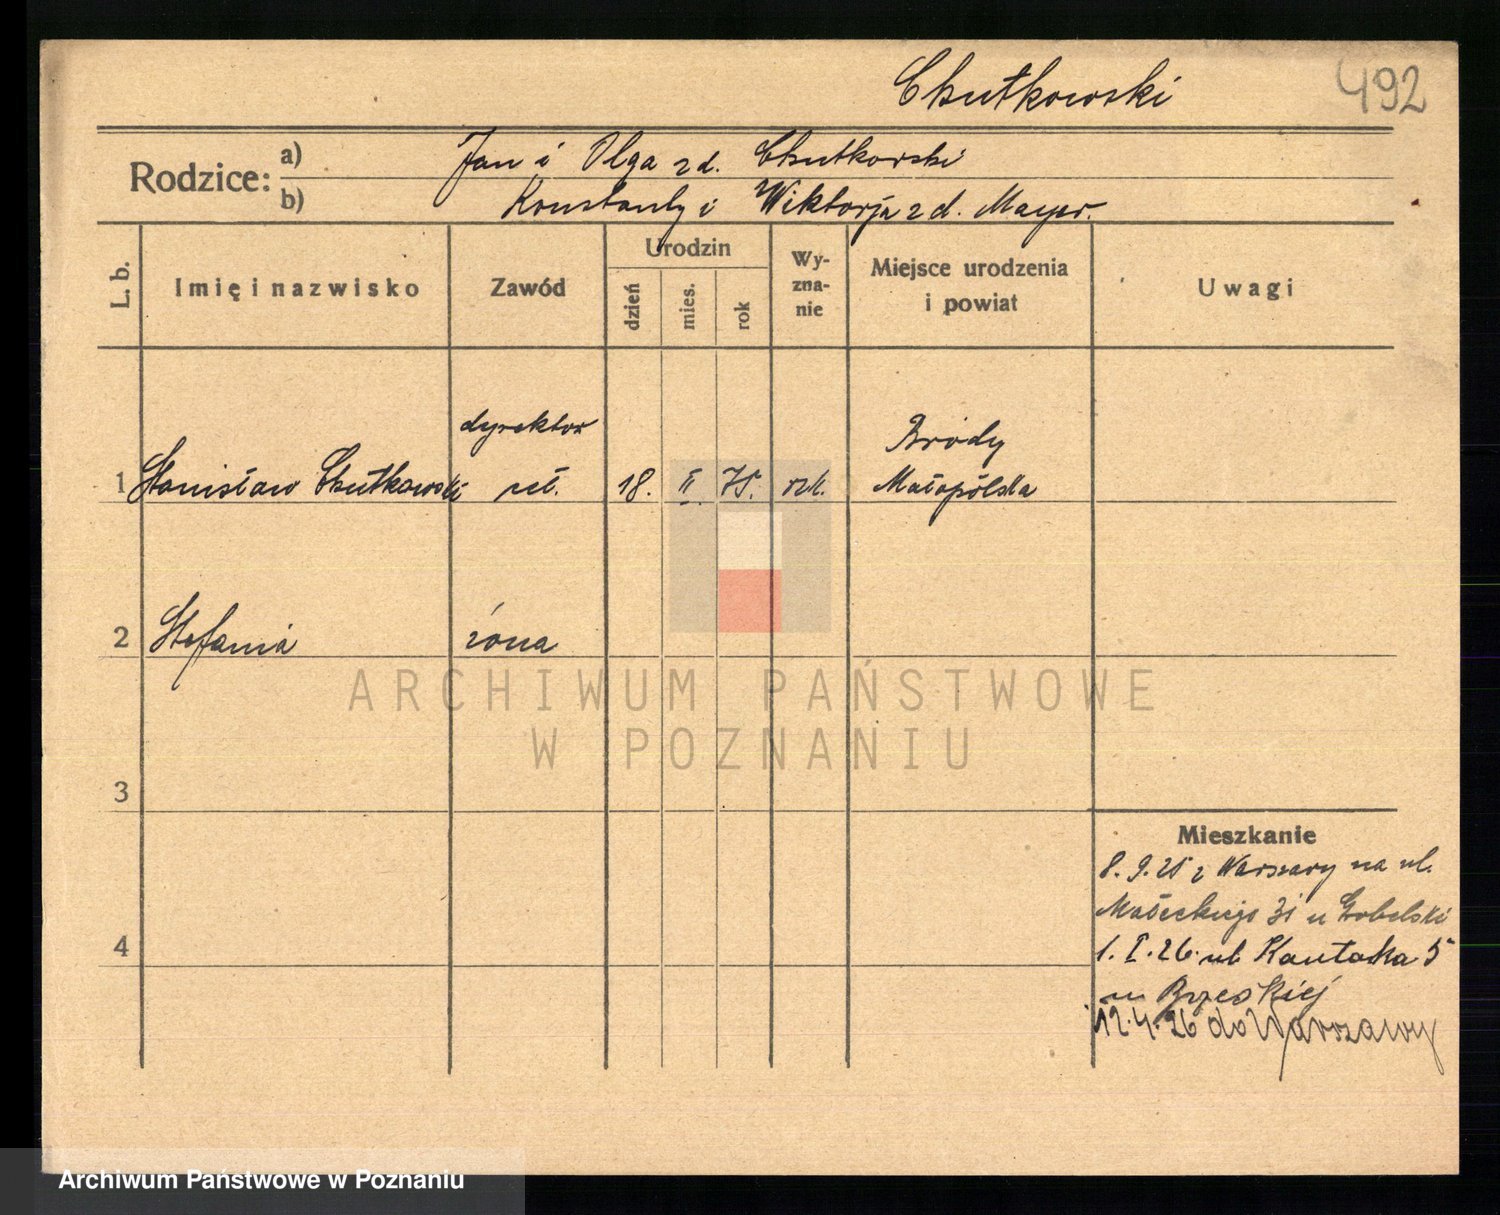 Chutkowski 492
Rodzice: a) Jan i Olga z d. Chutkowski
b) Konstanty i Wiktorja z d. Mayer.
L. b. Imię i nazwisko Zawód Urodzin dzień mies. rok Wy-zna-nie Miejsce urodzenia i powiat Uwagi
dyrektor Brody
1 Stanisław Chutkowski 18. II. 75. rzk. Małopolska
2 Stefania żona
ARCHIWUM PAŃSTWOWE
W POZNANIU
3
Mieszkanie
8.9.25 z Warszawy na ul.
Małeckiego 31 u
4
1.I.26. ul. 5
u Brzeskiej
12.4.26 do Warszawy
Archiwum Państwowe w Poznaniu